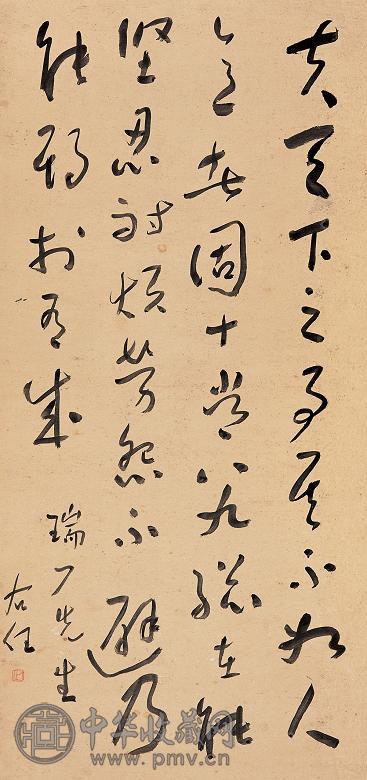 夫天下之事其不如人
意者固十常八九總在能
堅忍耐煩勞怨不避乃
能期於有成
瑞先生
右任
中华收藏网
www.pmv.cn